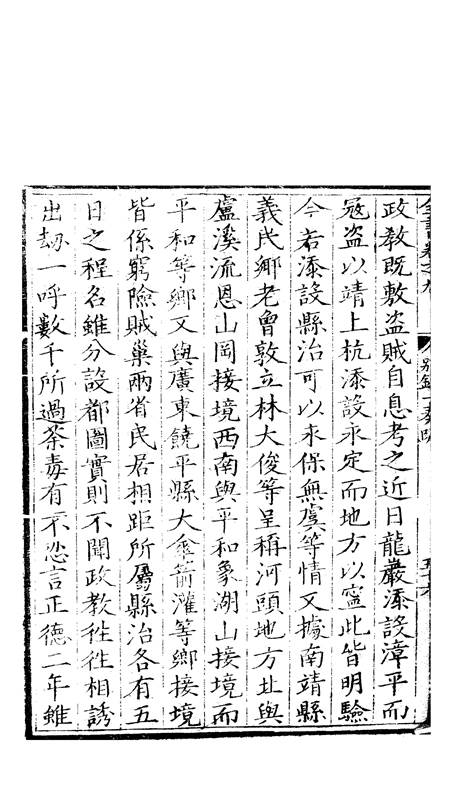 全書卷之九 別錄一奏疏 五十六
政教既敷盜賊自息考之近日龍巖添設漳平而
冦盜以靖上杭添設永定而地方以寧此皆明驗
今若添設縣治可以永保無虞等情又據南靖縣
義民鄉老曾敦立林大俊等呈稱河頭地方北與
盧溪流恩山岡接境西南與平和象湖山接境而
平和等鄉又與廣東饒平縣大傘箭灌等鄉接境
皆係窮險賊巢兩省民居相距所屬縣治各有五
日之程名雖分設都圖實則不聞政教徃徃相誘
出刼一呼數千所過荼毒有不忍言正德二年雖